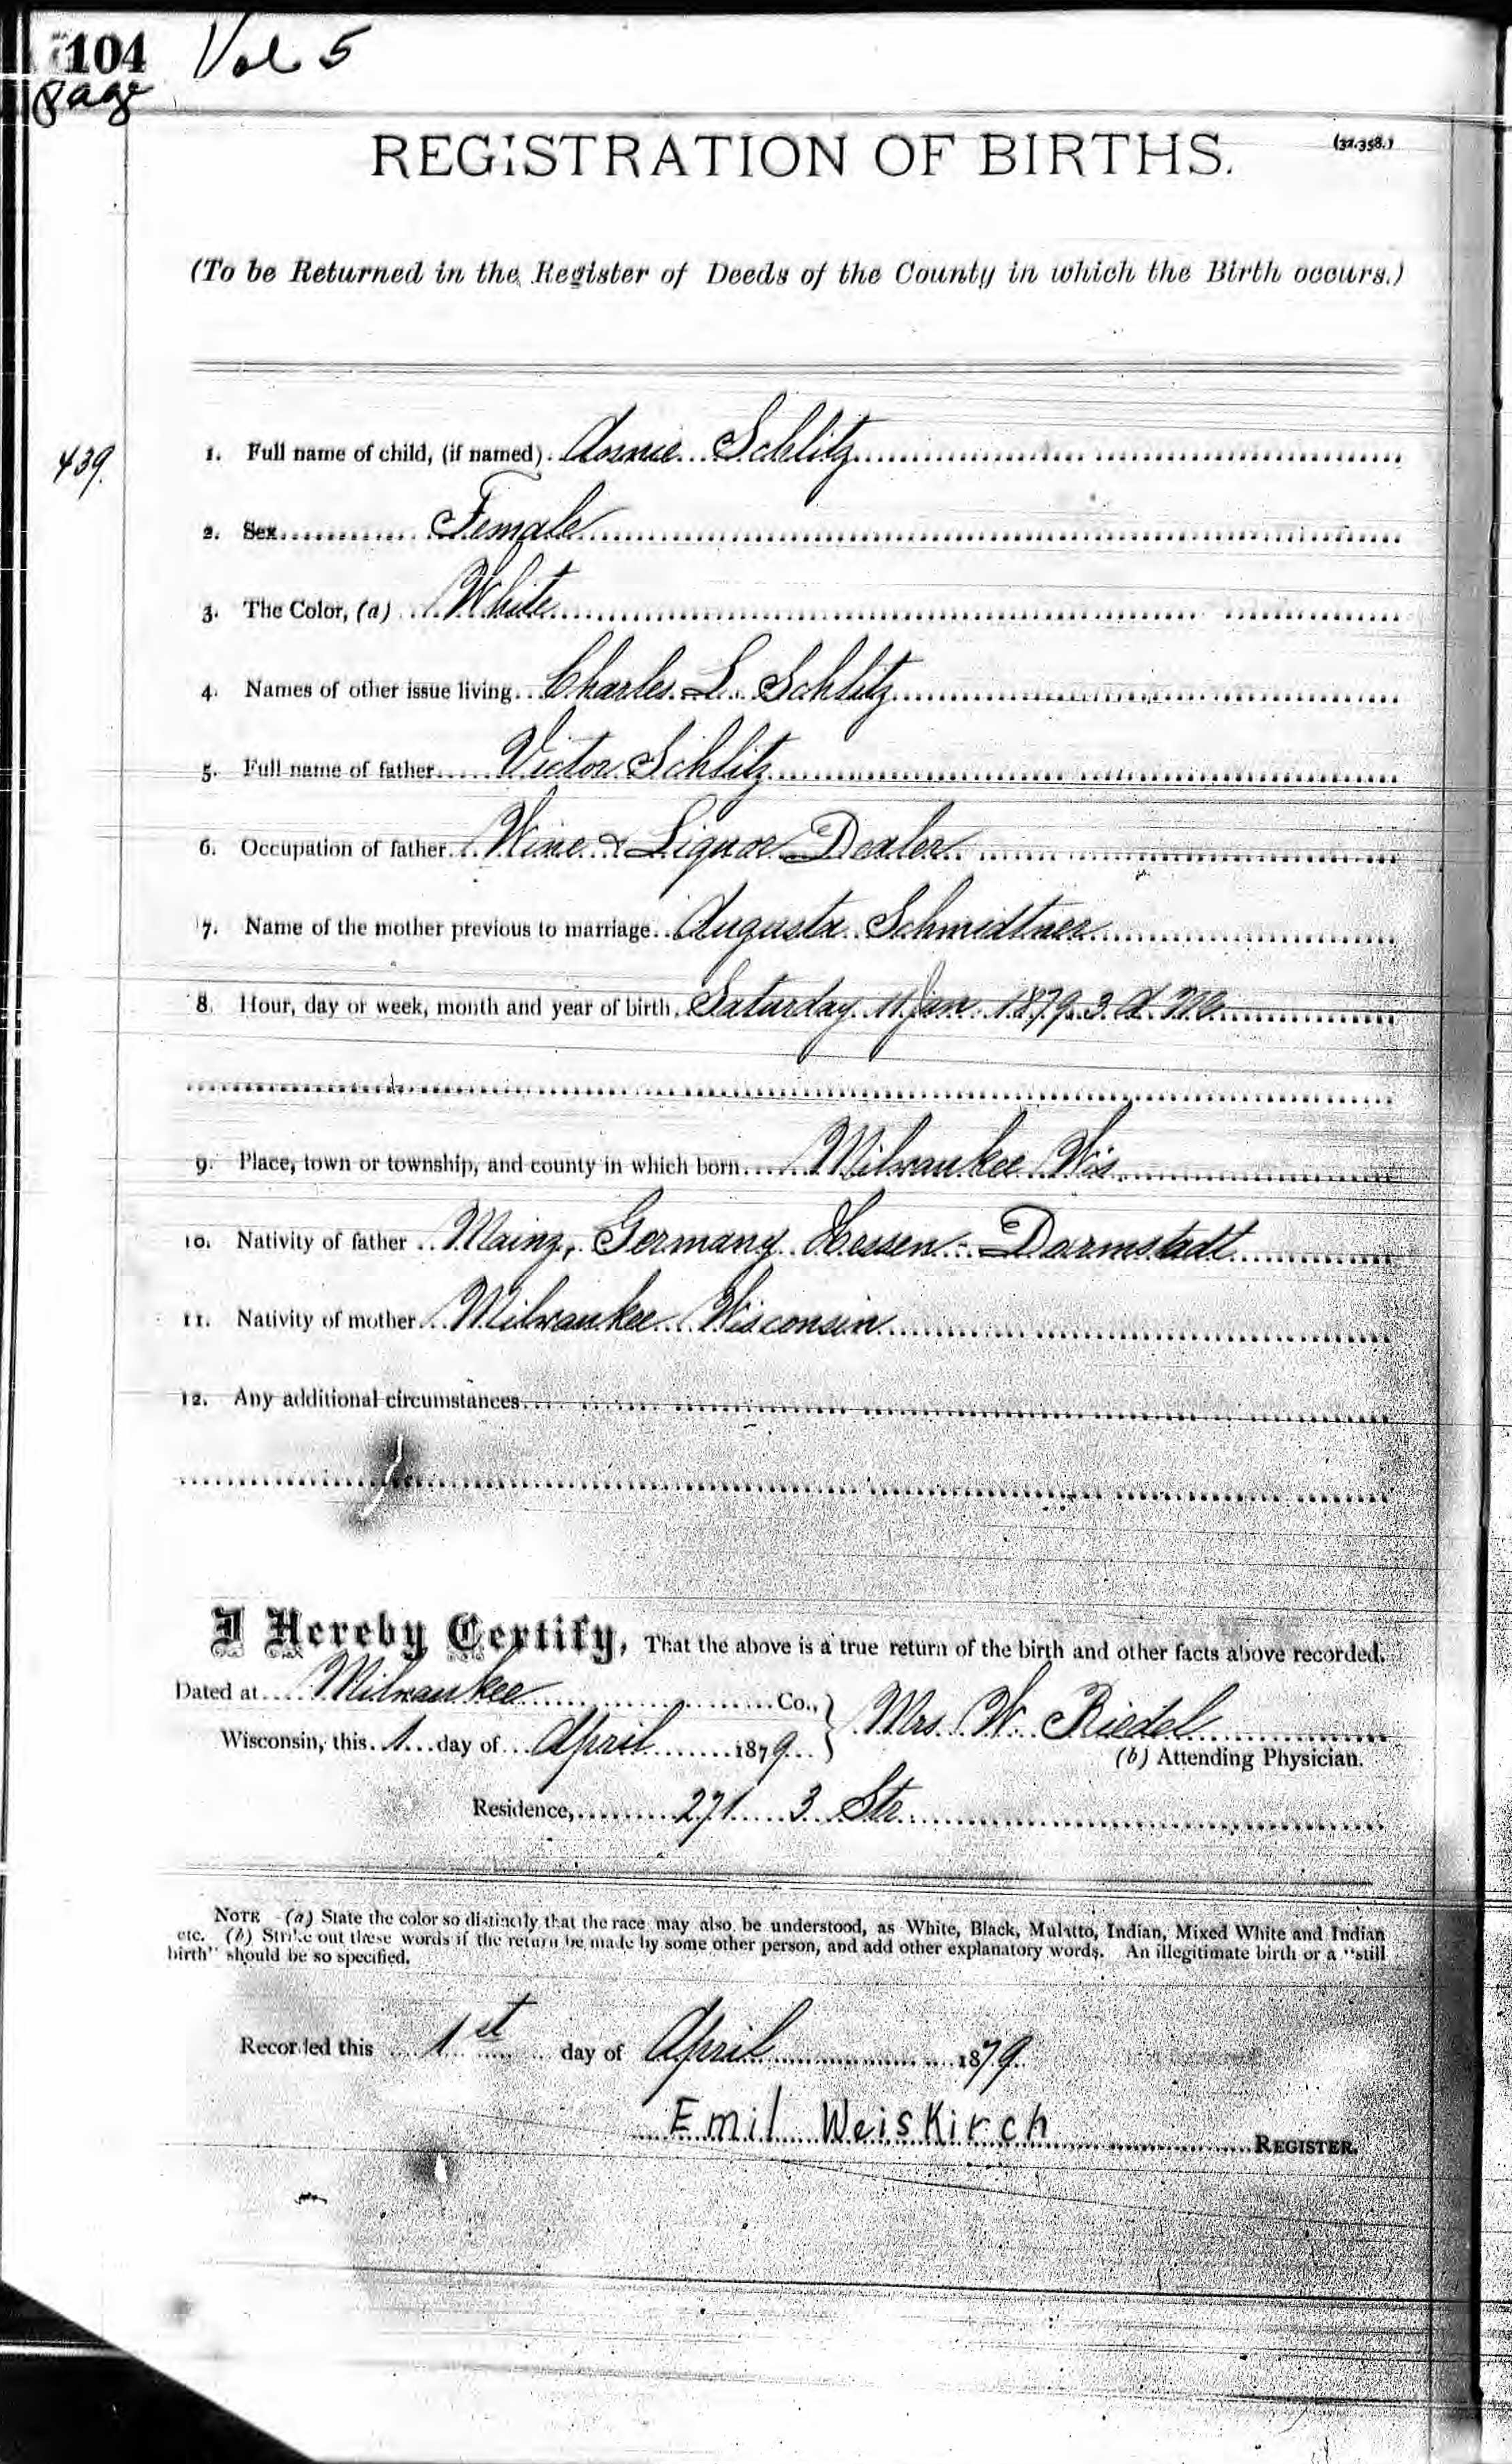 104 Vol 5
Page
REGISTRATION OF BIRTHS.
(32.358.)
(To be Returned in the Register of Deeds of the County in which the Birth occurs.)
439.
1. Full name of child, (if named). Annie Schlitz
2. Sex Female
3. The Color, (a) White
4. Names of other issue living. Charles L. Schlitz
5. Full name of father Victor Schlitz
6. Occupation of father Wine & Liquor Dealer
7. Name of the mother previous to marriage Augusta Schmidtner
8. Hour, day or week, month and year of birth. Saturday 11 Jan. 1879. 3 A. M.
9. Place, town or township, and county in which born Milwaukee Wis
10. Nativity of father Mainz, Germany Hessen-Darmstadt
11. Nativity of mother Milwaukee Wisconsin
12. Any additional circumstances
I Hereby Certify, That the above is a true return of the birth and other facts above recorded.
Dated at Milwaukee Co., Mrs. W. Riedel
Wisconsin, this 1 day of April 1879
(b) Attending Physician.
Residence, 271 3 Str.
NOTE -(a) State the color so distinctly that the race may also be understood, as White, Black, Mulatto, Indian, Mixed White and Indian
etc. (b) Strike out these words if the return be made by some other person, and add other explanatory words. An illegitimate birth or a "still
birth" should be so specified.
Recorded this 1st day of April 1879
Emil Weiskirch REGISTER.